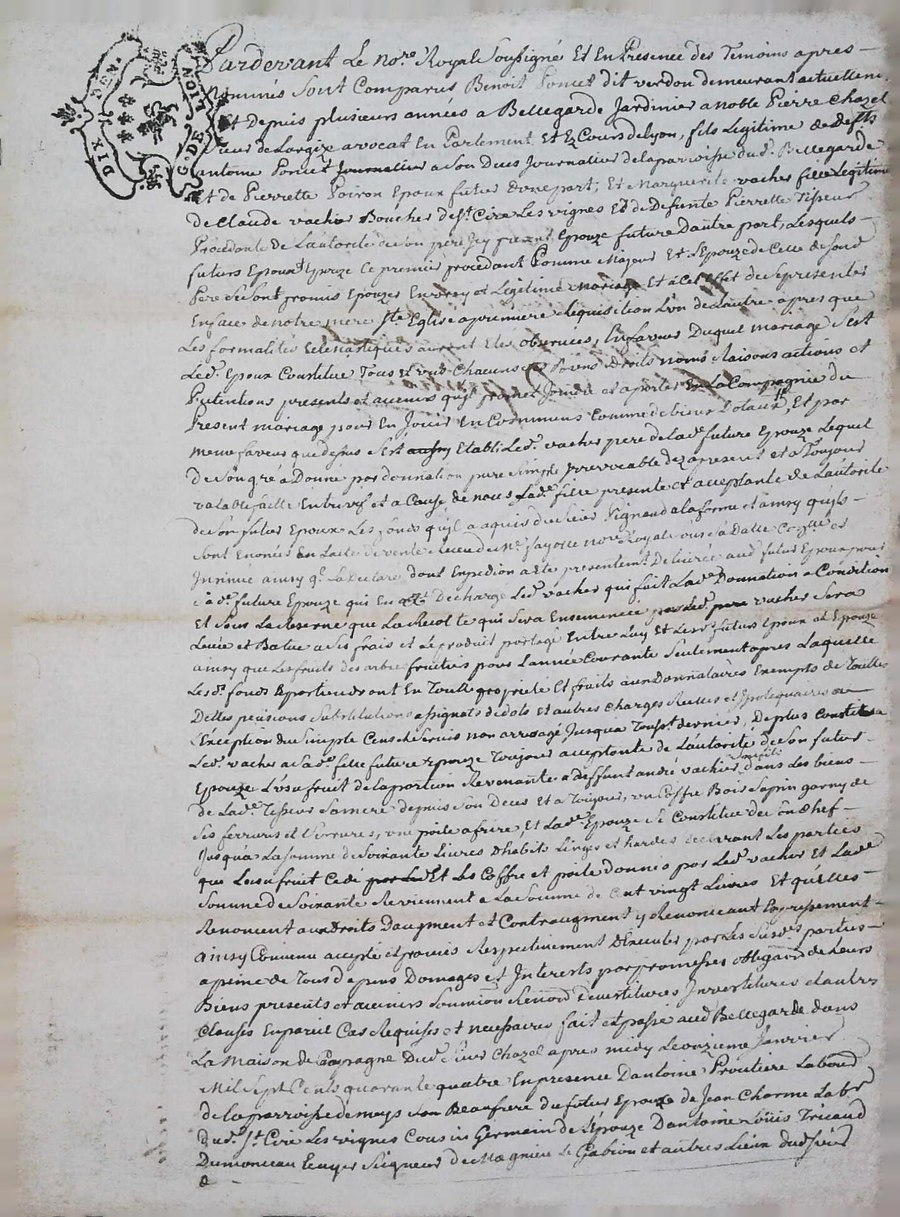 DIX DEN
G. DE LION
Pardevant Le No.re Royal Soussigné Et En Presence des Temoins apres
nommés Sont Comparus Benoit Poncet dit verdon demeurant actuellem.
Et Depuis plusieurs années a Bellegarde Jardinier a noble Pierre Chazel
avocat En Parlement Et Es Cours de Lyon, fils Legitime de Deff.ts
antoine Poncet Journalier a Son Deces Journalier de la parroisse dud. Bellegarde
Et de Pierrette Poiron Epoux futur dune part; Et Marguerite vacher fille Legitime
de Claude vacher Boucher de S.t Cire Les vignes Et de Deffunte Pierrette Tisseur
Procedante de Lautorité de son pere Icy present Epouze future Dautre part, Lesquels
futurs Epoux Et Epouze Ce premier procedant Comme Majeur Et L'Epouze de Celle de sond.
Pere Se sont promis Epouzer En vray et Legitime Mariage Et a Cet Effet de Se presenter
En face de notre mere S.te Eglise a premiere Requisition Lun de Lautre apres que
Les formalités Eclesiastiques auront Etés observées, En faveur Duquel mariage S'est
Led. Epoux Constitué Tous Et un Chacuns Ses Biens Droits noms Raisons actions et
Pretentions presents et avenir quil promet Joindre et aporter En La Compagnie du
Present mariage pour En Jouir En Commun Comme de Biens Dotaux, Et par
meme faveur que dessus S'est Etabli Led. vacher pere de Lad.e future Epouze Lequel
de Son gré a Donné par donnation pure Simple Irrevocable des apresent et a Toujours
valable faitte Entre vif et a Cause de noces Lad.e fille presente et acceptante de Lautorité
de Son futur Epoux Les fonds quil a aquis du sieur Pignaud a la forme et ainsy quils
Sont Enoncés En Lacte de vente Recue de M.e Jayotte no.re Royal
Insinué ainsy q.l La Declaré dont Expedion a Eté presentem.t Delivrée aud. futur Epoux pour
Lad.e future Epouze qui En Decharge Led. vacher qui fait Lad.e Donnation a Condition
Et Sous La Reserve que La Recolte qui Sera Ensemencée par Led. vacher Sera
Levée et Batue a Ses frais et Le produit partagé Entre Luy Et Lesd. futurs Epoux et Epouze
ainsy que Les fruits des arbres fruitiers pour Lannée Courante Seulement apres Laquelle
Lesd. fonds apartiendront En Toutte proprieté Et fruits aux Donnataires Exempts de Touttes
Dettes pensions Substitutions assignats de dots et autres Charges Reelles et Hypotequaires a
L'Exception du Simple Cens et Servis non arreragé Jusqua Tousst. dernier, De plus Constitue
Led. vacher a Sad.e fille future Epouze Toujours acceptante de Lautorité de Son futur
Epouze L'usufruit de la portion Revenante a deffunt andré vacher dans Les biens
de Lad.e Tisseur Sa mere depuis Son Deces Et a Toujours, un Coffre Bois Sapin garny de
Ses ferrures et Serrures, une poile a frire Et Lad.e Epouze Se Constitue de Son Chef
Jusqua La Somme de Soixante Livres Dhabits Linges et hardes declarant Les parties
que Lusufruit Cedé Et Les Coffre et poile donnés par Led. vacher et Lad.e
Somme de Soixante Reviennent a La Somme de Cent vingt Livres Et qu'elles
Renoncent aux Droits Daugment et Contraugment y Renonceant Expressement
ainsy Convenu accepté et promis Respectivement D'Executer par Les Susd.es parties
a peine de Tous Depens Domages et Interests par promesses obligaon de Leurs
Biens presents et avenir Soumions Renond Devestitures Investitures et autres
Clauses En pareil Cas Requises et necessaires fait et passé aud. Bellegarde dans
La Maison de Campagne Dud. Sieur Chazel apres midy Le onzieme Janvier
Mil Sept Cents quarante quatre En presence Dantoine Proutiere Labour
de la parroisse de mays Son Beaufrere du futur Epoux de Jean Charme Lab.r
dud. S.t Cire Les vignes Cousin Germain de L'Epouze Dantoine Louis Tricaud
Dumonceau Ecuyer Seigneur de Magnieu Le Gabion et autres Lieux dud. sieur